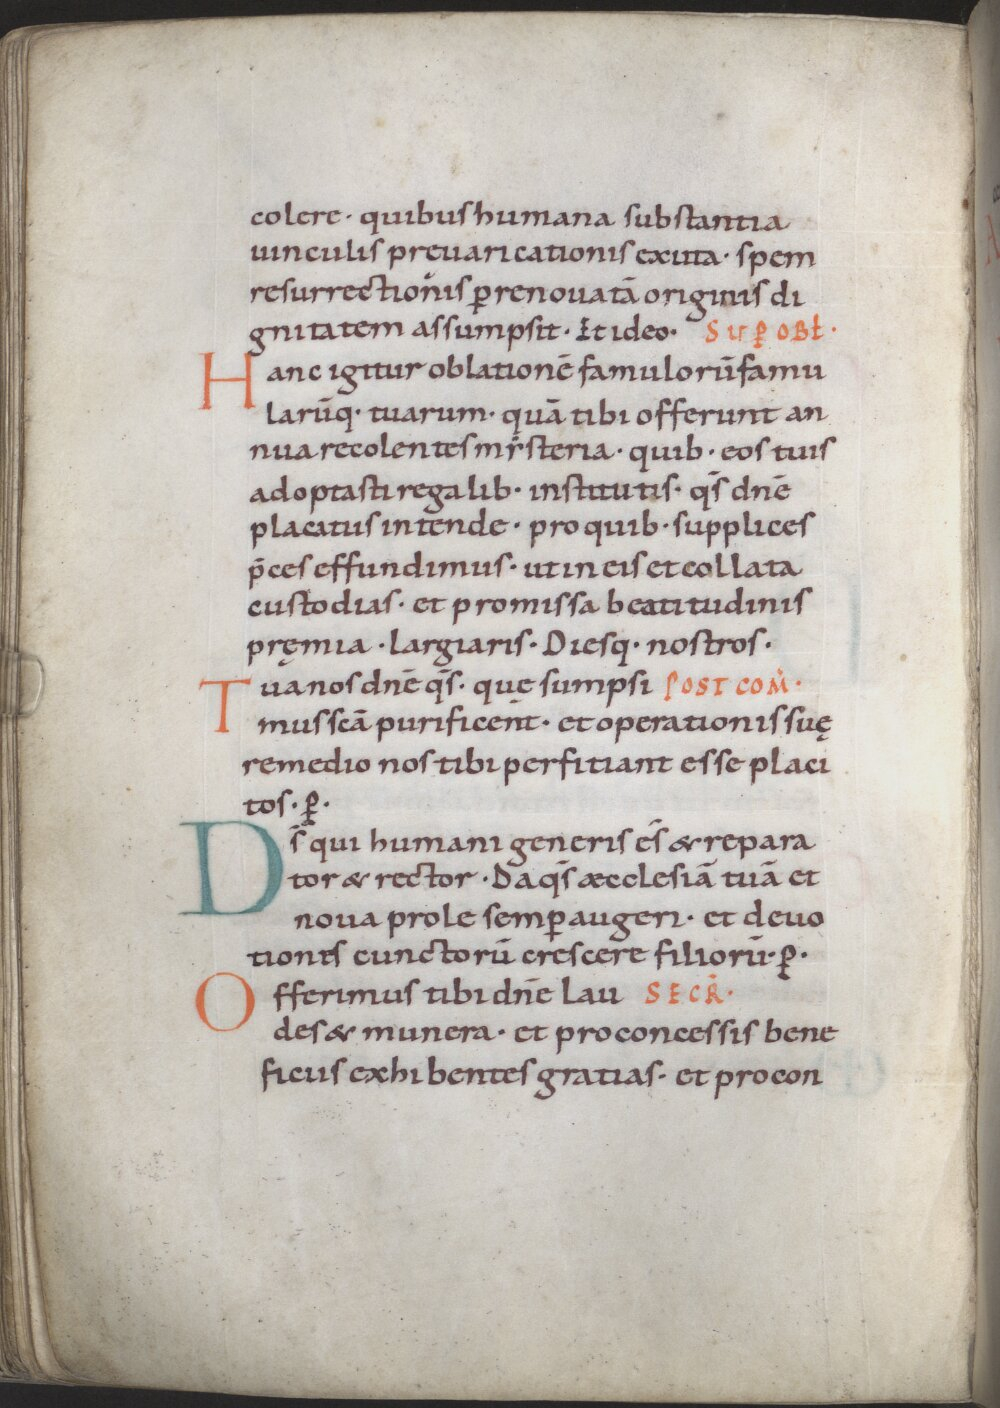 colere · quibus humana substantia
uinculis preuaricationis exuta · spem
resurrectionis ꝑ renouatā originis di
gnitatem assumpsit · Et ideo · SUꝐ OBŁ ·
Hanc igitur oblationē famulorū famu
larūq· tuarum · quā tibi offerunt an
nua recolentes mẏsteria · quib · eos tuis
adoptasti regalib · institutis · q̄s dnē
placatus intende · pro quib · supplices
p̄ces effundimus · ut in eis et collata
custodias · et promissa beatitudinis
pręmia · largiaris · Diesq · nostros ·
Tua nos dnē q̄s · quę sumpsi POST COM̄ ·
mus scā purificent · et operationis suę
remedio nos tibi perfitiant esse placi
tos · ꝑ ·
Ds̄ qui humani generis ēs & repara
tor & rector · Da q̄s æcclesiā tuā et
noua prole semꝑ augeri · et deuo
tionis cunctorū crescere filiorū · ꝑ ·
Offerimus tibi dnē lau SECR̄ ·
des & munera · et pro concessis bene
ficiis exhibentes gratias · et pro con